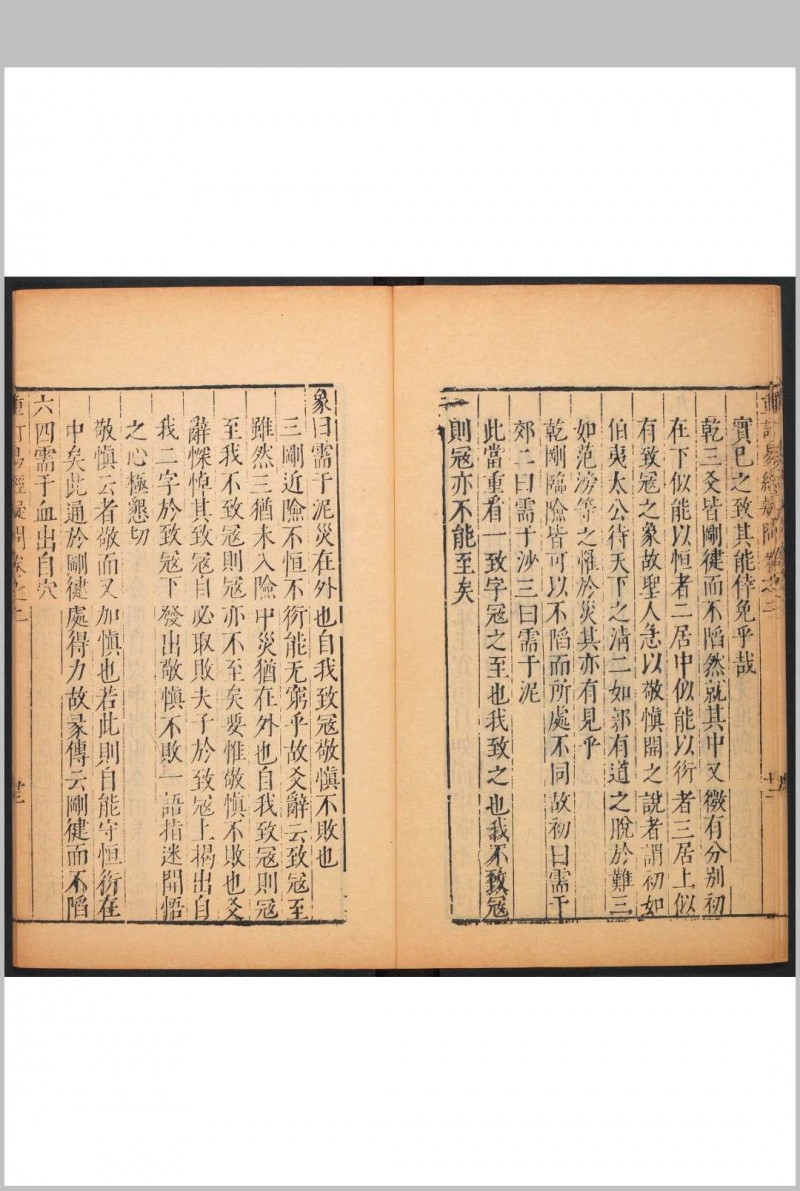 重訂易經疑問卷之二
實已之致其能倖免乎哉
乾三爻皆剛健而不陷然就其中又微有分別初
在下似能以恒者二居中似能以衍者三居上似
有致寇之象故聖人急以敬慎開之說者謂初如
伯夷太公待天下之清二如郭有道之脫於難三
如范滂等之惟於災其亦有見乎
乾剛臨險皆可以不陷而所處不同故初曰需于
郊二曰需于沙三曰需于泥
此當重看一致字寇之至也我致之也我不致寇
則寇亦不能至矣
象曰需于泥災在外也自我致寇敬慎不敗也
三剛近險不恒不衍能无窮乎故爻辭云致寇至
雖然三猶未入險中災猶在外也自我致寇則寇
至我不致寇則寇亦不至矣要惟敬慎不敗也爻
辭惕悼其致寇自必取敗夫子於致寇上揭出自
我二字於致寇下發出敬慎不敗一語指迷開悟
之心極懇切
敬慎云者敬而又加慎也若此則自能守恒衍在
中矣此通於剛健處得力故彖傳云剛健而不陷
六四需于血出自穴
重訂易經疑問卷之二